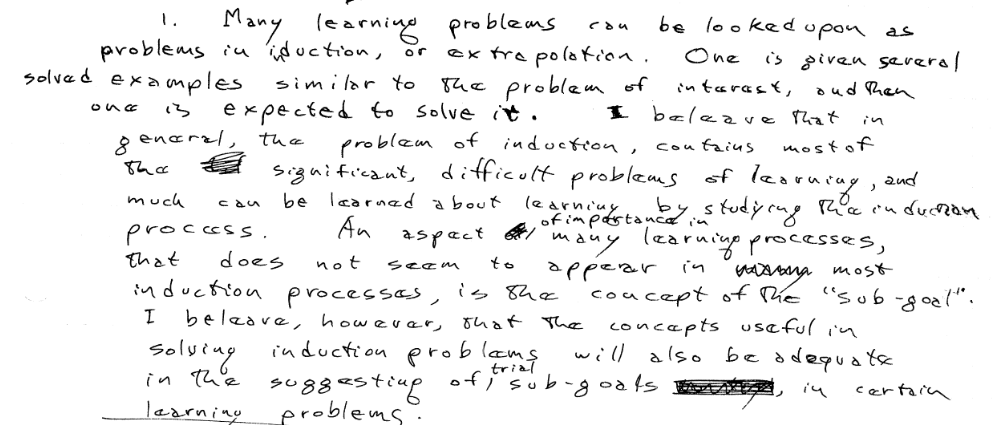 1. Many learning problems can be looked upon as
problems in induction, or extrapolation. One is given several
solved examples similar to the problem of interest, and then
one is expected to solve it. I beleave that in
general, the problem of induction, contains most of
the significant, difficult problems of learning, and
much can be learned about learning by studying the induction
process. An aspect of importance in many learning processes,
that does not seem to appear in most
induction processes, is the concept of the "sub-goal".
I beleave, however, that the concepts useful in
solving induction problems will also be adequate
in the suggesting of trial sub-goals, in certain
learning problems.